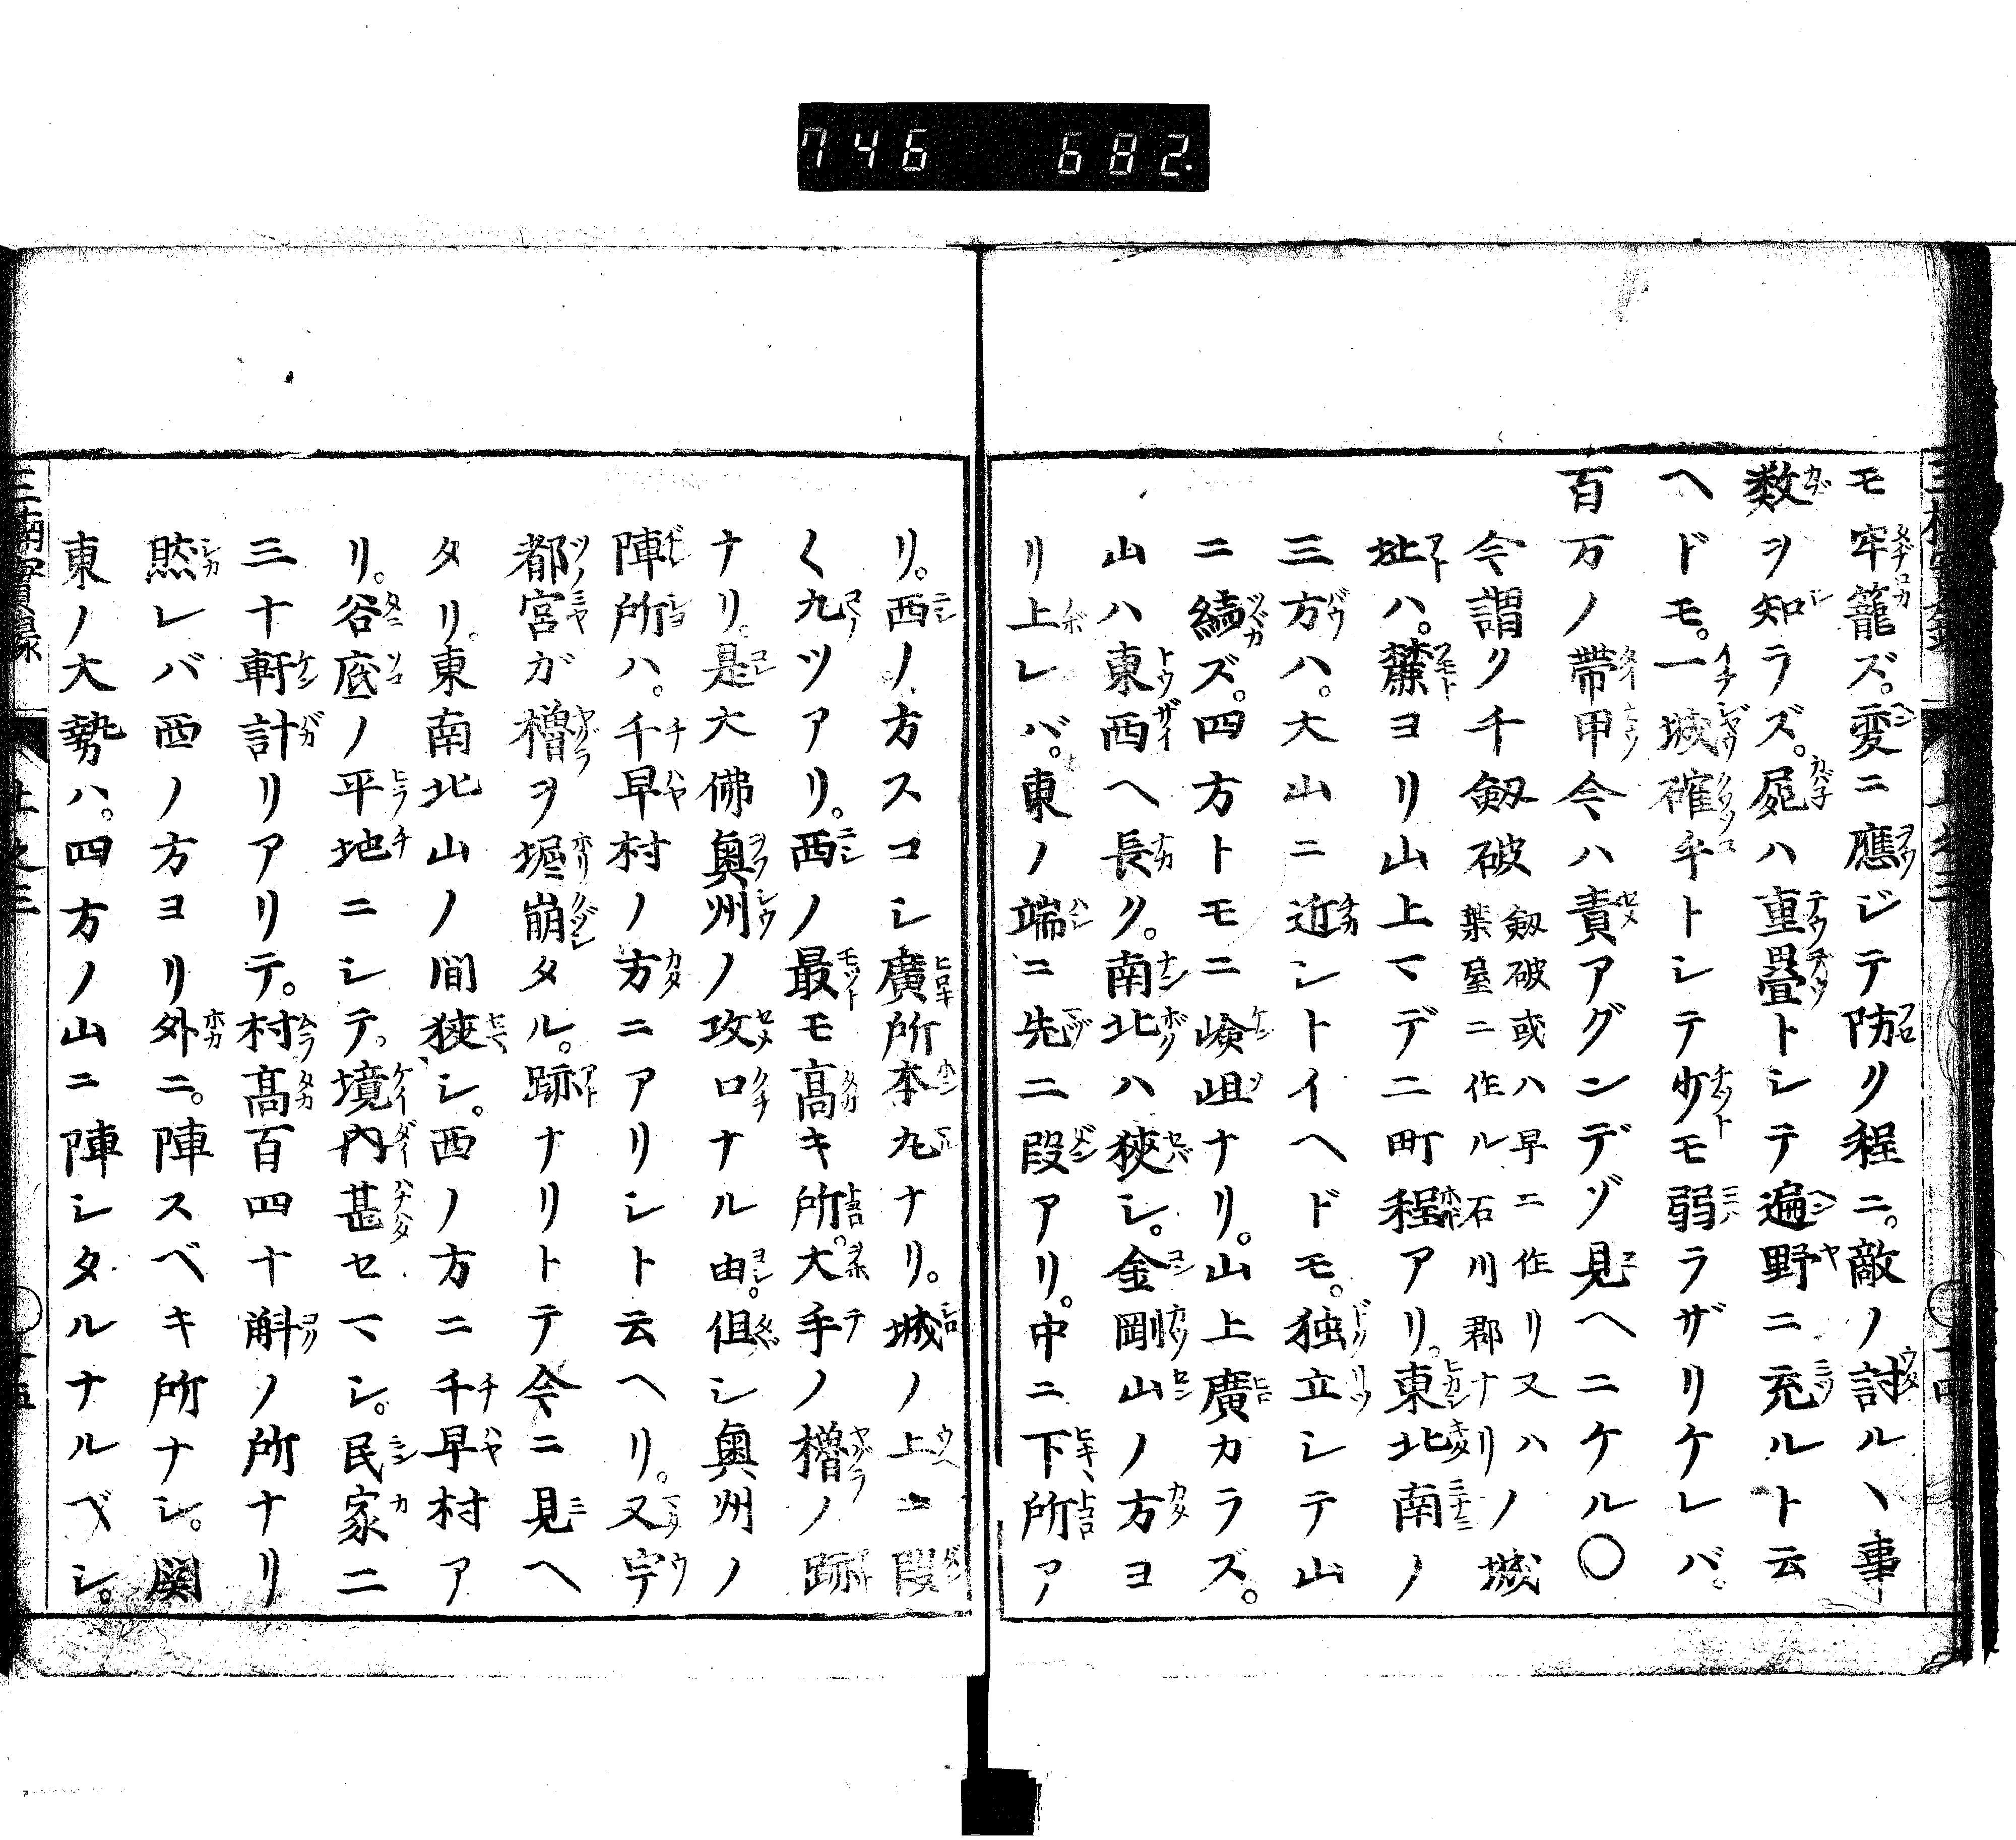 746 682
モ牢籠ズ。変ニ應ジテ防リ程ニ。敵ノ討ルヽ事
数ヲ知ラズ。屍ハ重畳トシテ遍野ニ充ルト云
ヘドモ。一城確乎トシテ少モ弱ラザリケレバ。
百万ノ帯甲今ハ責アグンデゾ見ヘニケル〇
今謂ク千劔破
劔破或ハ早ニ作リ又ハ
葉屋ニ作ル石川郡ナリ
ノ城
址ハ。麓ヨリ山上マデ二町程アリ。東北南ノ
三方ハ。大山ニ近シトイヘドモ。独立シテ山
ニ續ズ。四方トモニ嶮岨ナリ。山上廣カラズ。
山ハ東西ヘ長ク。南北ハ狹シ。金剛山ノ方ヨ
リ上レバ。東ノ端ニ先二段アリ。中ニ下所ア
リ。西ノ方スコシ廣所本丸ナリ。城ノ上ニ段
〱九ツアリ。西ノ最モ高キ所。大手ノ櫓ノ跡
ナリ。是大佛奥州ノ攻口ナル由。但シ奥州ノ
陣所ハ。千早村ノ方ニアリシト云ヘリ。又宇
都宮ガ櫓ヲ堀崩タル。跡ナリトテ今ニ見ヘ
タリ。東南北山ノ間狹シ。西ノ方ニ千早村ア
リ。谷底ノ平地ニシテ。境内甚セマシ。民家二
三十軒計リアリテ。村高百四十斛ノ所ナリ
然レバ西ノ方ヨリ外ニ。陣スベキ所ナシ。関
東ノ大勢ハ。四方ノ山ニ陣シタルナルベシ。